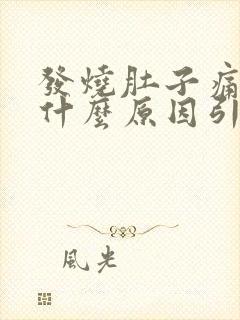 發燒肚子痛
什麼原因引
風光